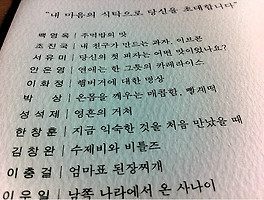 "내 마음의 식탁으로 당신을 초대합니다"
백영옥 | 주먹밥의 맛
조진국 | 내 친구가 만드는 과자, 이브콘
서유미 | 당신의 첫 피자는 어떤 맛이었나요?
안은영 | 연애는 한 그릇의 카레라이스
이화정 | 햄버거에 대한 명상
박 상 | 온몸을 깨우는 매콤한, 빵계떡
성석제 | 영혼의 거처
한창훈 | 지금 익숙한 것을 처음 만났을 때
김창완 | 수제비와 비틀즈
이충걸 | 엄마표 된장찌개
이우일 | 남쪽 나라에서 온 사나이